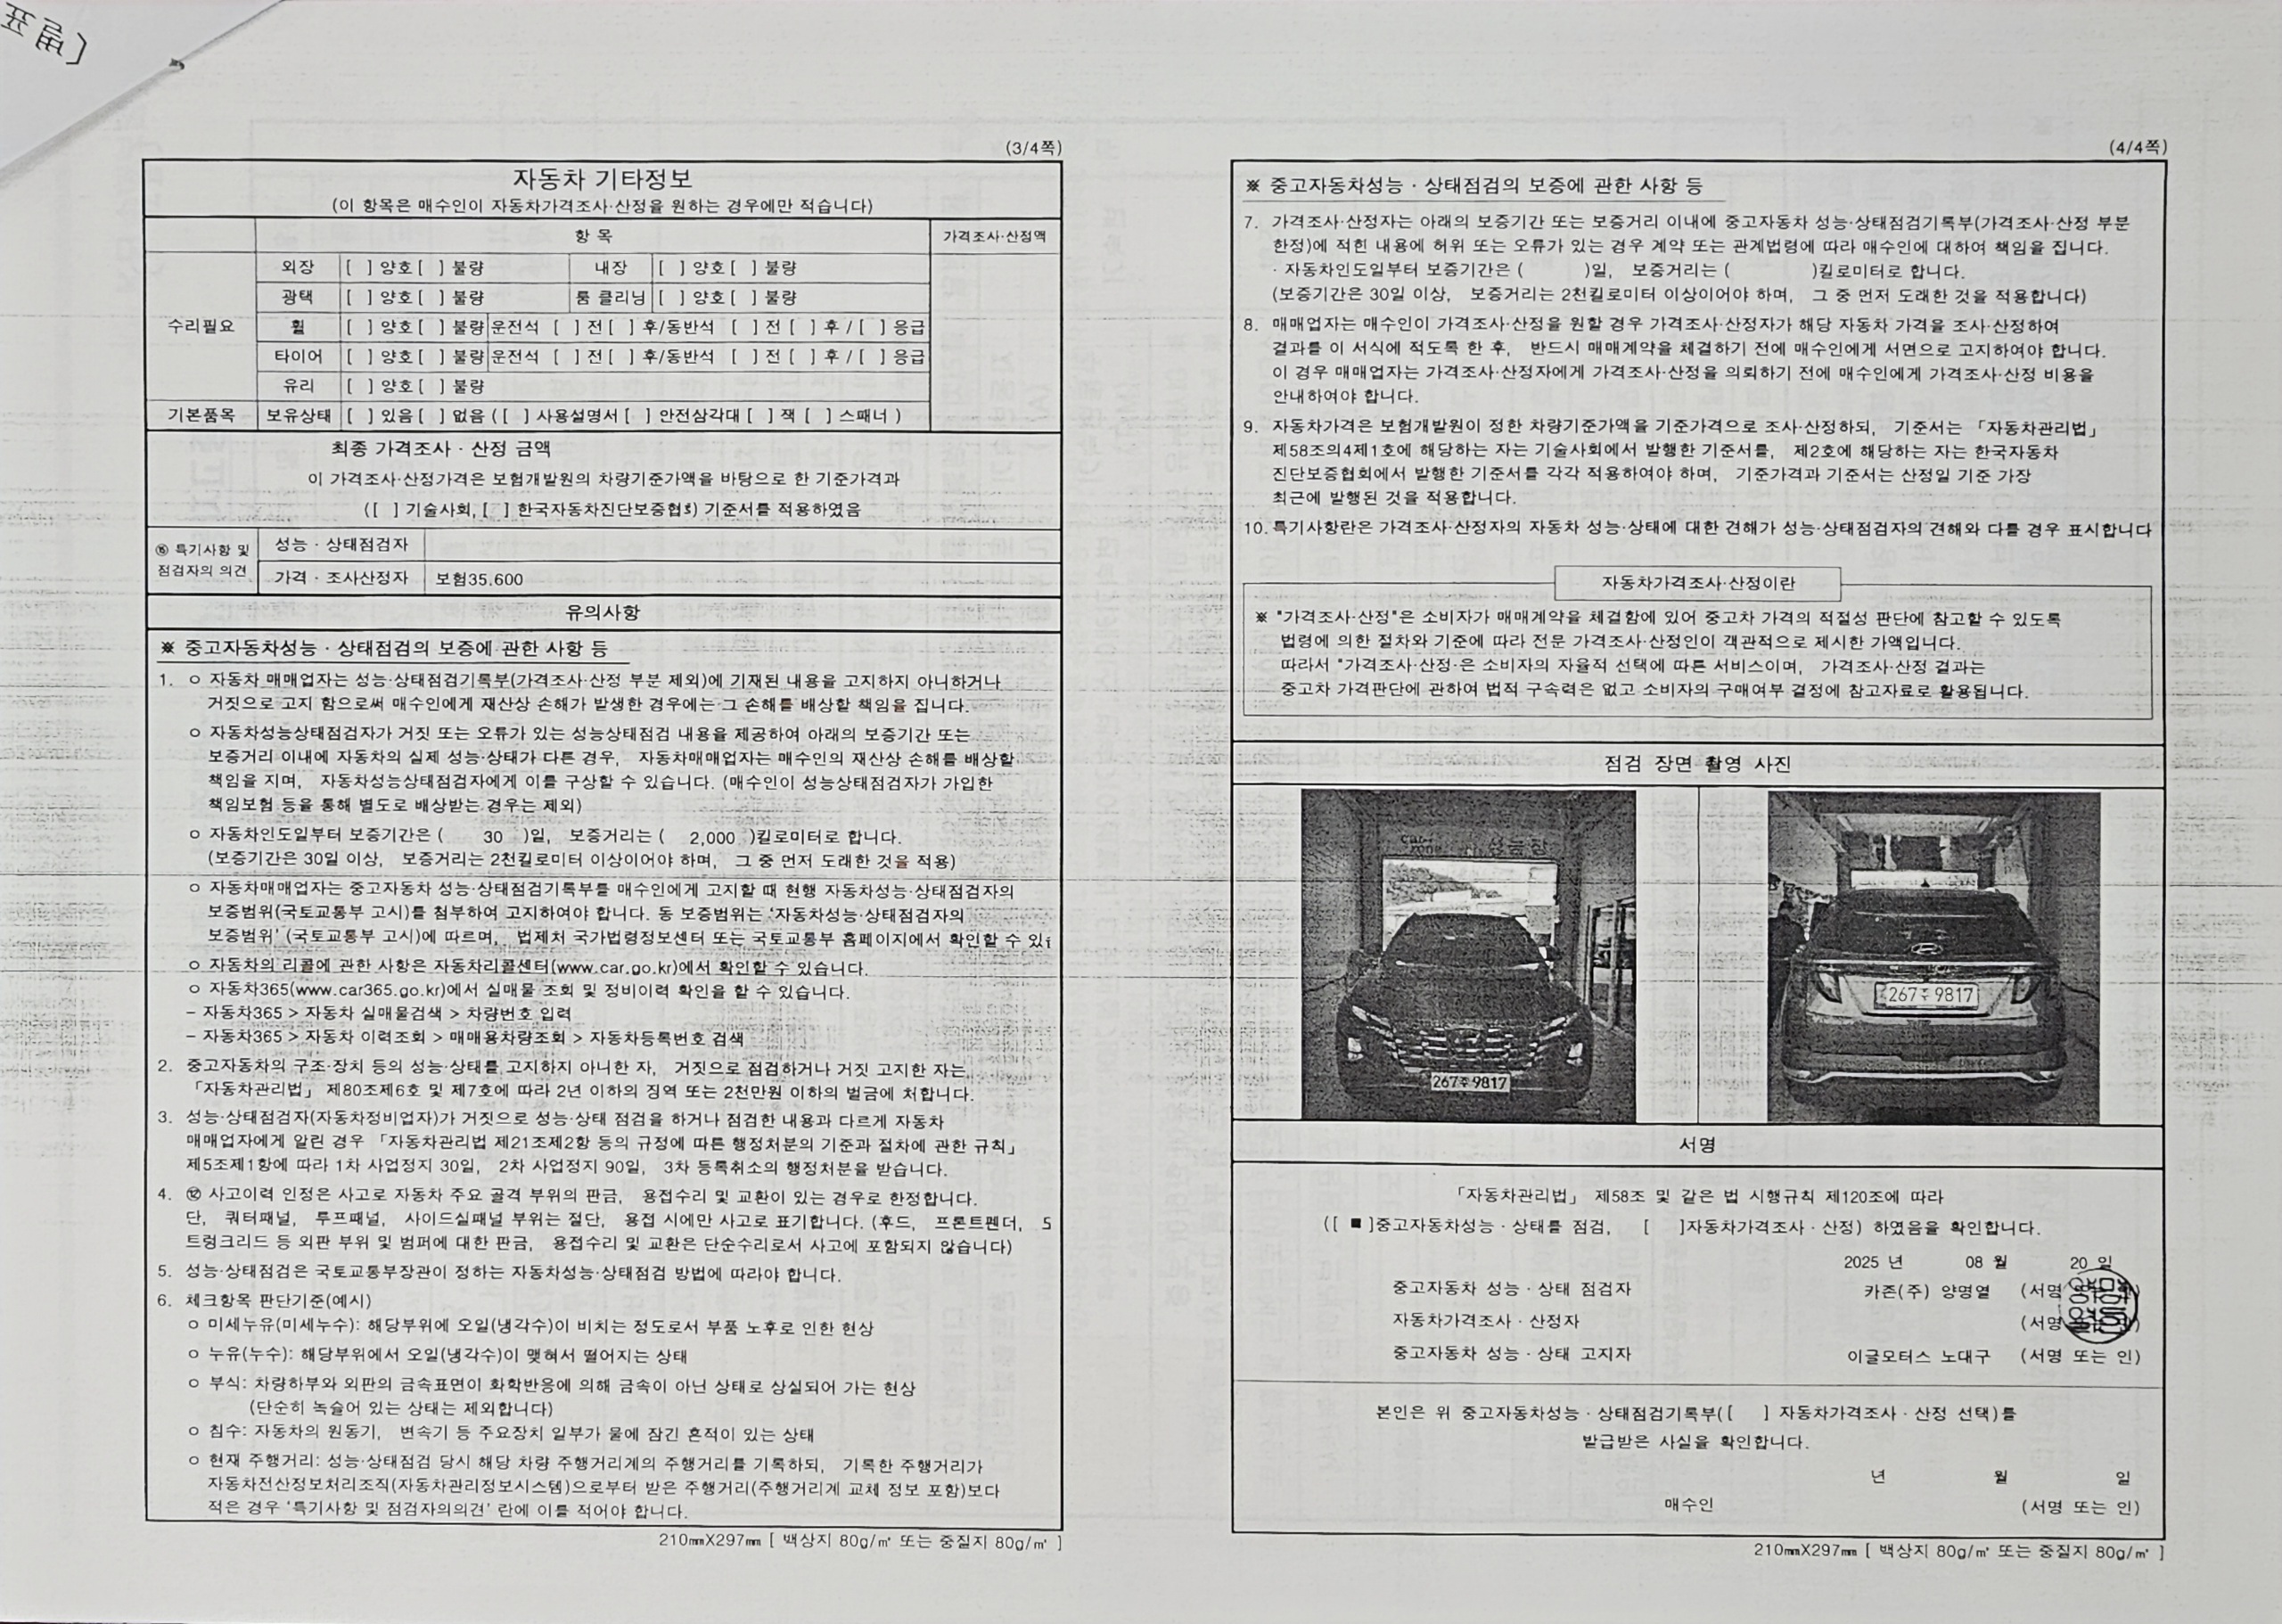 (3/4쪽)
자동차 기타정보
(이 항목은 매수인이 자동차가격조사·산정을 원하는 경우에만 적습니다)
항 목 가격조사·산정액
수리필요
외장 [ ] 양호 [ ] 불량 내장 [ ] 양호 [ ] 불량
광택 [ ] 양호 [ ] 불량 룸 클리닝 [ ] 양호 [ ] 불량
휠 [ ] 양호 [ ] 불량 운전석 [ ] 전 [ ] 후/동반석 [ ] 전 [ ] 후 / [ ] 응급
타이어 [ ] 양호 [ ] 불량 운전석 [ ] 전 [ ] 후/동반석 [ ] 전 [ ] 후 / [ ] 응급
유리 [ ] 양호 [ ] 불량
기본품목 보유상태 [ ] 있음 [ ] 없음 ( [ ] 사용설명서 [ ] 안전삼각대 [ ] 잭 [ ] 스패너 )
최종 가격조사 · 산정 금액
이 가격조사·산정가격은 보험개발원의 차량기준가액을 바탕으로 한 기준가격과
([ ] 기술사회, [ ] 한국자동차진단보증협) 기준서를 적용하였음
⑮ 특기사항 및
점검자의 의견
성능 · 상태점검자
가격 · 조사산정자 보험35,600
유의사항
※ 중고자동차성능 · 상태점검의 보증에 관한 사항 등
1. ㅇ 자동차 매매업자는 성능·상태점검기록부(가격조사·산정 부분 제외)에 기재된 내용을 고지하지 아니하거나
거짓으로 고지 함으로써 매수인에게 재산상 손해가 발생한 경우에는 그 손해를 배상할 책임을 집니다.
ㅇ 자동차성능상태점검자가 거짓 또는 오류가 있는 성능상태점검 내용을 제공하여 아래의 보증기간 또는
보증거리 이내에 자동차의 실제 성능·상태가 다른 경우, 자동차매매업자는 매수인의 재산상 손해를 배상할
책임을 지며, 자동차성능상태점검자에게 이를 구상할 수 있습니다. (매수인이 성능상태점검자가 가입한
책임보험 등을 통해 별도로 배상받는 경우는 제외)
ㅇ 자동차인도일부터 보증기간은 ( 30 )일, 보증거리는 ( 2,000 )킬로미터로 합니다.
(보증기간은 30일 이상, 보증거리는 2천킬로미터 이상이어야 하며, 그 중 먼저 도래한 것을 적용)
ㅇ 자동차매매업자는 중고자동차 성능·상태점검기록부를 매수인에게 고지할 때 현행 자동차성능·상태점검자의
보증범위(국토교통부 고시)를 첨부하여 고지하여야 합니다. 동 보증범위는 '자동차성능·상태점검자의
보증범위' (국토교통부 고시)에 따르며, 법제처 국가법령정보센터 또는 국토교통부 홈페이지에서 확인할 수 있
ㅇ 자동차의 리콜에 관한 사항은 자동차리콜센터(www.car.go.kr)에서 확인할 수 있습니다.
ㅇ 자동차365(www.car365.go.kr)에서 실매물 조회 및 정비이력 확인을 할 수 있습니다.
- 자동차365 > 자동차 실매물검색 > 차량번호 입력
- 자동차365 > 자동차 이력조회 > 매매용차량조회 > 자동차등록번호 검색
2. 중고자동차의 구조·장치 등의 성능·상태를 고지하지 아니한 자, 거짓으로 점검하거나 거짓 고지한 자는
「자동차관리법」 제80조제6호 및 제7호에 따라 2년 이하의 징역 또는 2천만원 이하의 벌금에 처합니다.
3. 성능·상태점검자(자동차정비업자)가 거짓으로 성능·상태 점검을 하거나 점검한 내용과 다르게 자동차
매매업자에게 알린 경우 「자동차관리법 제21조제2항 등의 규정에 따른 행정처분의 기준과 절차에 관한 규칙」
제5조제1항에 따라 1차 사업정지 30일, 2차 사업정지 90일, 3차 등록취소의 행정처분을 받습니다.
4. ⑫ 사고이력 인정은 사고로 자동차 주요 골격 부위의 판금, 용접수리 및 교환이 있는 경우로 한정합니다.
단, 쿼터패널, 루프패널, 사이드실패널 부위는 절단, 용접 시에만 사고로 표기합니다. (후드, 프론트펜더,
트렁크리드 등 외판 부위 및 범퍼에 대한 판금, 용접수리 및 교환은 단순수리로서 사고에 포함되지 않습니다)
5. 성능·상태점검은 국토교통부장관이 정하는 자동차성능·상태점검 방법에 따라야 합니다.
6. 체크항목 판단기준(예시)
ㅇ 미세누유(미세누수): 해당부위에 오일(냉각수)이 비치는 정도로서 부품 노후로 인한 현상
ㅇ 누유(누수): 해당부위에서 오일(냉각수)이 맺혀서 떨어지는 상태
ㅇ 부식: 차량하부와 외판의 금속표면이 화학반응에 의해 금속이 아닌 상태로 상실되어 가는 현상
(단순히 녹슬어 있는 상태는 제외합니다)
ㅇ 침수: 자동차의 원동기, 변속기 등 주요장치 일부가 물에 잠긴 흔적이 있는 상태
ㅇ 현재 주행거리: 성능·상태점검 당시 해당 차량 주행거리계의 주행거리를 기록하되, 기록한 주행거리가
자동차전산정보처리조직(자동차관리정보시스템)으로부터 받은 주행거리(주행거리계 교체 정보 포함)보다
적은 경우 '특기사항 및 점검자의의견' 란에 이를 적어야 합니다.
210㎜X297㎜ [ 백상지 80g/㎡ 또는 중질지 80g/㎡ ]
(4/4쪽)
※ 중고자동차성능 · 상태점검의 보증에 관한 사항 등
7. 가격조사·산정자는 아래의 보증기간 또는 보증거리 이내에 중고자동차 성능·상태점검기록부(가격조사·산정 부분
한정)에 적힌 내용에 허위 또는 오류가 있는 경우 계약 또는 관계법령에 따라 매수인에 대하여 책임을 집니다.
· 자동차인도일부터 보증기간은 ( )일, 보증거리는 ( )킬로미터로 합니다.
(보증기간은 30일 이상, 보증거리는 2천킬로미터 이상이어야 하며, 그 중 먼저 도래한 것을 적용합니다)
8. 매매업자는 매수인이 가격조사·산정을 원할 경우 가격조사·산정자가 해당 자동차 가격을 조사·산정하여
결과를 이 서식에 적도록 한 후, 반드시 매매계약을 체결하기 전에 매수인에게 서면으로 고지하여야 합니다.
이 경우 매매업자는 가격조사·산정자에게 가격조사·산정을 의뢰하기 전에 매수인에게 가격조사·산정 비용을
안내하여야 합니다.
9. 자동차가격은 보험개발원이 정한 차량기준가액을 기준가격으로 조사·산정하되, 기준서는 「자동차관리법」
제58조의4제1호에 해당하는 자는 기술사회에서 발행한 기준서를, 제2호에 해당하는 자는 한국자동차
진단보증협회에서 발행한 기준서를 각각 적용하여야 하며, 기준가격과 기준서는 산정일 기준 가장
최근에 발행된 것을 적용합니다.
10. 특기사항란은 가격조사·산정자의 자동차 성능·상태에 대한 견해가 성능·상태점검자의 견해와 다를 경우 표시합니다
자동차가격조사·산정이란
※ "가격조사·산정"은 소비자가 매매계약을 체결함에 있어 중고차 가격의 적절성 판단에 참고할 수 있도록
법령에 의한 절차와 기준에 따라 전문 가격조사·산정인이 객관적으로 제시한 가액입니다.
따라서 "가격조사·산정·은 소비자의 자율적 선택에 따른 서비스이며, 가격조사·산정 결과는
중고차 가격판단에 관하여 법적 구속력은 없고 소비자의 구매여부 결정에 참고자료로 활용됩니다.
점검 장면 촬영 사진
267주 9817
267주 9817
서명
「자동차관리법」 제58조 및 같은 법 시행규칙 제120조에 따라
([ ■ ]중고자동차성능 · 상태를 점검, [ ]자동차가격조사 · 산정) 하였음을 확인합니다.
2025 년 08 월 20 일
중고자동차 성능 · 상태 점검자 카존(주) 양명열 (서명
자동차가격조사 · 산정자 (서명
중고자동차 성능 · 상태 고지자 이글모터스 노대구 (서명 또는 인)
본인은 위 중고자동차성능 · 상태점검기록부([ ] 자동차가격조사 · 산정 선택)를
발급받은 사실을 확인합니다.
년 월 일
매수인 (서명 또는 인)
210㎜X297㎜ [ 백상지 80g/㎡ 또는 중질지 80g/㎡ ]